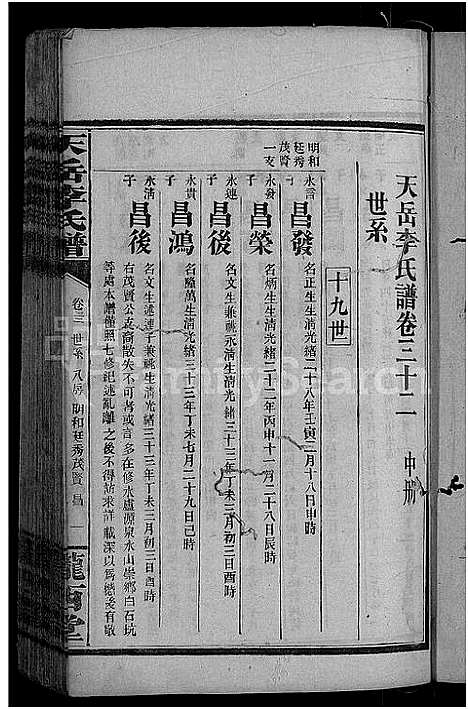 天岳李氏譜卷三十二 中册
世系
十九世
明和
廷秀
茂賢
一支
永言
子
昌發
名正生生清光緒二十八年壬寅二月十八日申時
永發
子
昌榮
名炳生生清光緒二十二年丙申十一月二十八日辰時
永連
子
昌後
名文生兼祧永清生清光緒三十三年丁未三月初三日酉時
永貴
子
昌鴻
名隆萬生清光緒三十三年丁未七月二十九日己時
永清
子
昌後
名文生述連子兼祧生清光緒三十三年丁未三月初三日酉時
右茂賢公袁裔散失不可考或言多在修水盧源泉水山崇鄉白石坑
等處本譜僅照七修紀述亂離之後不得訪來詳載深以為憾後有敬
天岳李氏譜
卷三 世系 八房 明和廷秀茂賢 昌 一
隴西堂
FamilySearch